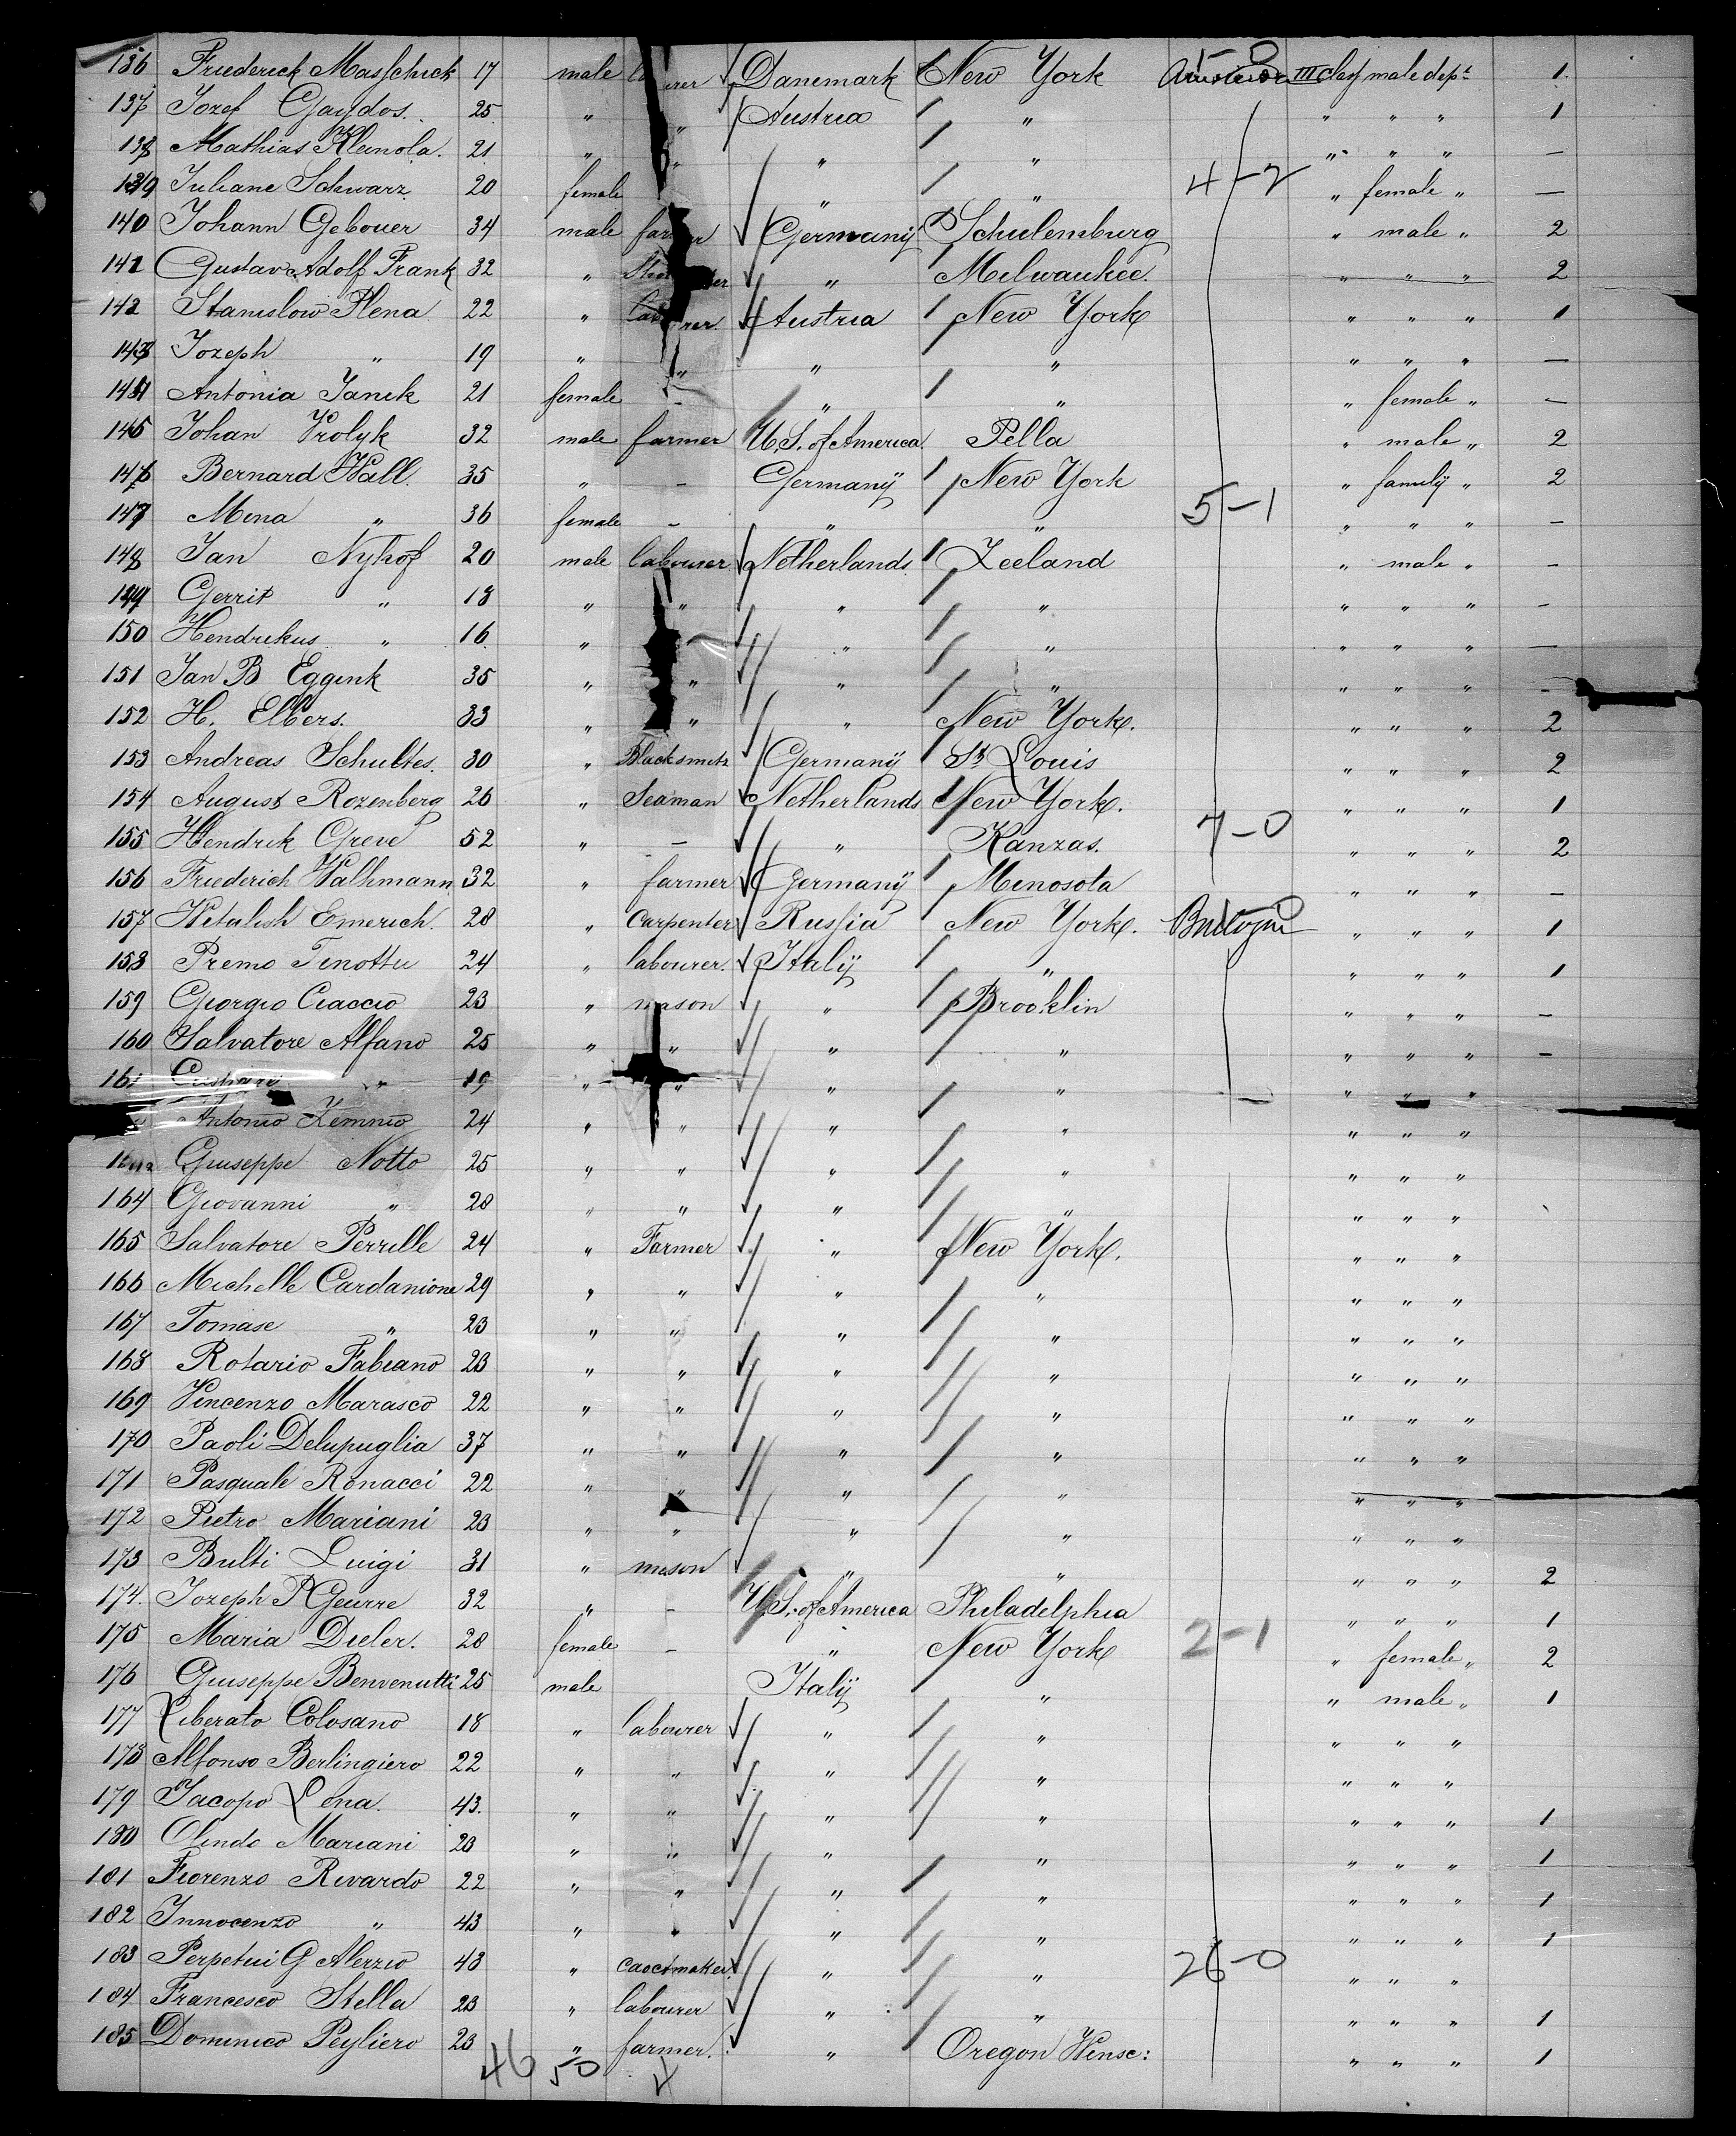 136 Friederick Masschick 17 male Danemark New York III clas male dept 1
137 Jozef Gaydos. 25 " " Austria " " " " 1
138 Mathias Kleinola. 21 " " " " " " " —
139 Juliane Schwarz 20 female " " 4-2 " female " —
140 Johann Gebouer 34 male farmer Germany Schulemburg " male " 2
141 Gustav Adolf Frank 32 " " Milwaukee. " " " 2
142 Stanislow Plena 22 " labourer Austria New York " " " 1
143 Jozeph " 19 " " " " " " " —
144 Antonia Janek 21 female – " " " female " —
145 Johan Vrolyk 32 male farmer U.S. of America Pella " male " 2
146 Bernard Wall. 35 " – Germany New York " family " 2
147 Mena " 36 female – " " 5-1 " " " –
148 Jan Nyhof 20 male labourer Netherlands Zeeland " male " –
149 Gerrit " 18 " " " " " " " –
150 Hendrikus " 16 " " " " " " —
151 Jan B Eggink 35 " " " " " " " –
152 H. Elbers. 33 " " " New York. " " " 2
153 Andreas Schultes. 30 " Blacksmith Germany St Louis " " " 2
154 August Rozenberg 26 " Seaman Netherlands New York. " " " 1
155 Hendrik Greve 52 " – " Kanzas. 7-0 " " " 2
156 Friederich Walhmann 32 " farmer Germany Menosota " " " –
157 Witalish Emerich. 28 " Carpenter Russia New York. " " " 1
158 Premo Tinottu 24 " labourer. Italy " " " " 1
159 Giorgio Ciaccio 23 " mason " Brooklin " " " –
160 Salvatore Alfano 25 " " " " " " " –
161 " 19 " " " " " " "
Antonio Zemnio 24 " " " " " " "
Giuseppe Notto 25 " " " " " " "
164 Giovanni " 28 " " " " " " "
165 Salvatore Perrelle 24 " Farmer " New York. " " "
166 Michelle Cardanione 29 " " " " " " "
167 Tomase " 23 " " " " " " "
168 Rotario Fabiano 23 " " " " " " "
169 Vincenzo Marasco 22 " " " " " " "
170 Paoli Delupuglia 37 " " " " " " "
171 Pasquale Ronacci 22 " " " " " " "
172 Pietro Mariani 23 " " " " " " "
173 Bulti Luigi 31 " mason " " " " " 2
174. Jozeph P Geurre 32 " – U.S. of America Philadelphia " " " 1
175 Maria Dieler. 28 female – " New York 2-1 " female " 2
176 Giuseppe Benvenutti 25 male Italy " " male " 1
177 Liberato Colosano 18 " labourer " " " " "
178 Alfonso Berlingiero 22 " " " " " " "
179 Jacopo Lena. 43. " " " " " " " 1
180 Olindo Mariani 23 " " " " " " " 1
181 Fiorenzo Rivardo 22 " " " " " " " 1
182 Innocenzo " 43 " " " " " " " 1
183 Perpetui G Alerzio 43 " " " 26-0 " " "
184 Francesco Stella 23 " labourer " " " " " 1
185 Dominico Peyliero 23 " farmer. " Oregon Winsc: " " " 1
46 50 4